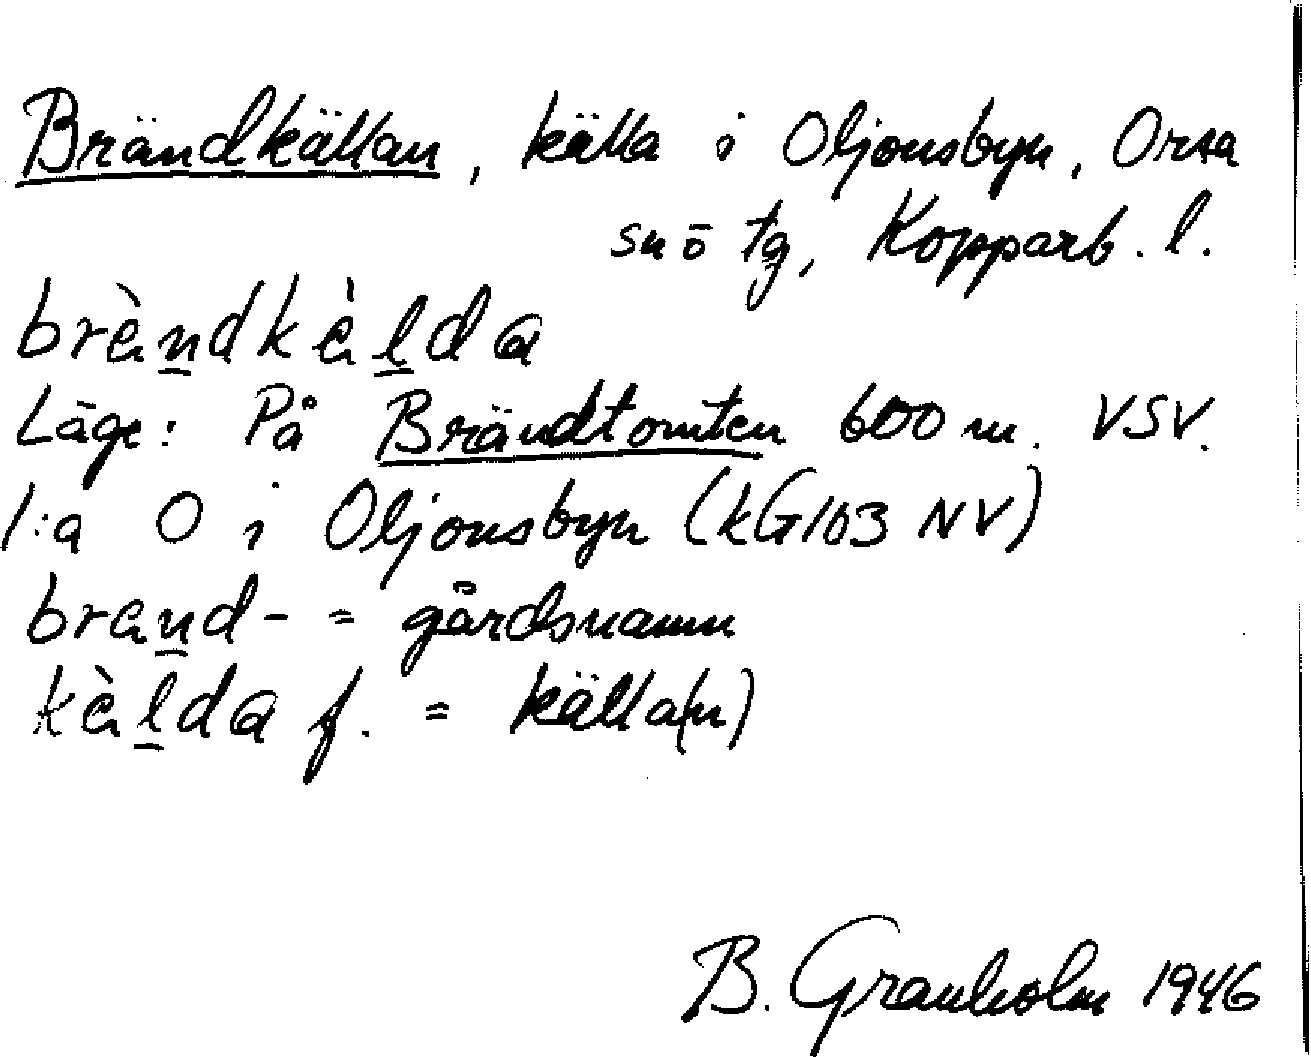 Brändkällan, källa i Oljonsbyn, Orsa
sn ö tg, Kopparb. l.
brὲn̲dkὲl̲da
Läge: På Brändtomten 600 m. VSV.
l:a O i Oljonsbyn (kG103 NV)
brɛn̲d- = gårdsnamn
kὲl̲da f. = källa(n)
B. Granholm 1946